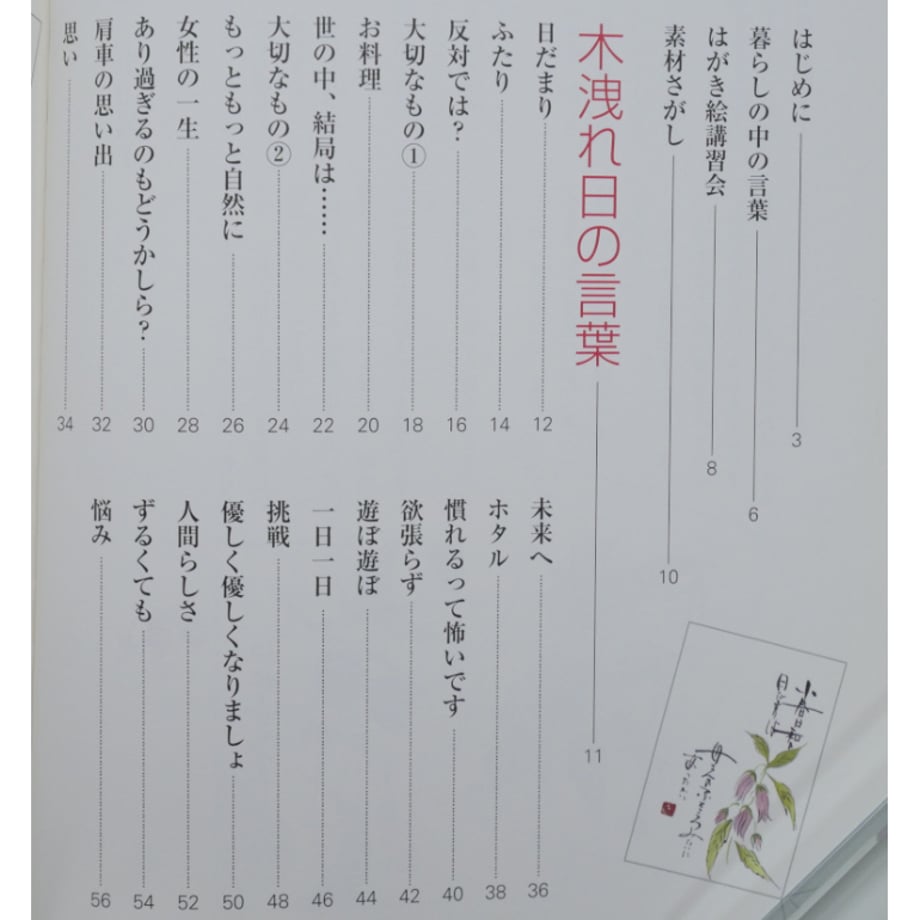 はじめに 3
暮らしの中の言葉 6
はがき絵講習会 8
素材さがし 10
木洩れ日の言葉 11
日だまり 12
ふたり 14
反対では? 16
大切なもの① 18
お料理 20
世の中、結局は…… 22
大切なもの② 24
もっともっと自然に 26
女性の一生 28
あり過ぎるのもどうかしら? 30
肩車の思い出 32
思い 34
未来へ 36
ホタル 38
慣れるって怖いです 40
欲張らず 42
遊ぼ遊ぼ 44
一日一日 46
挑戦 48
優しく優しくなりましょ 50
人間らしさ 52
ずるくても 54
悩み 56
小春日和